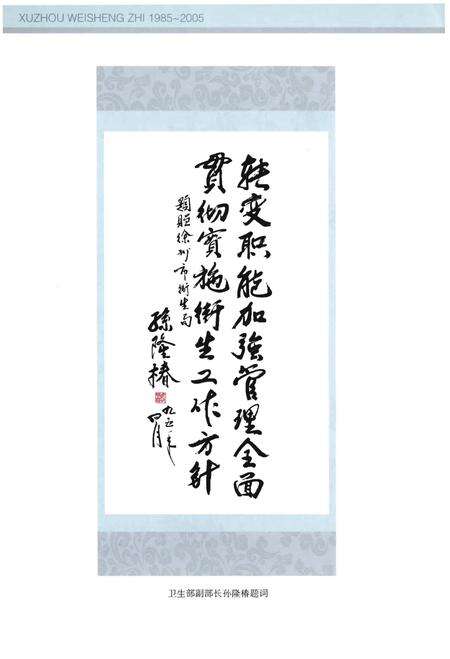 XUZHOU WEISHENG ZHI 1985~2005
转变职能加強管理全面
贯彻實施衛生工作方针
題贈徐州市衛生局
孫隆椿
九五年
四月
卫生部副部长孙隆椿题词